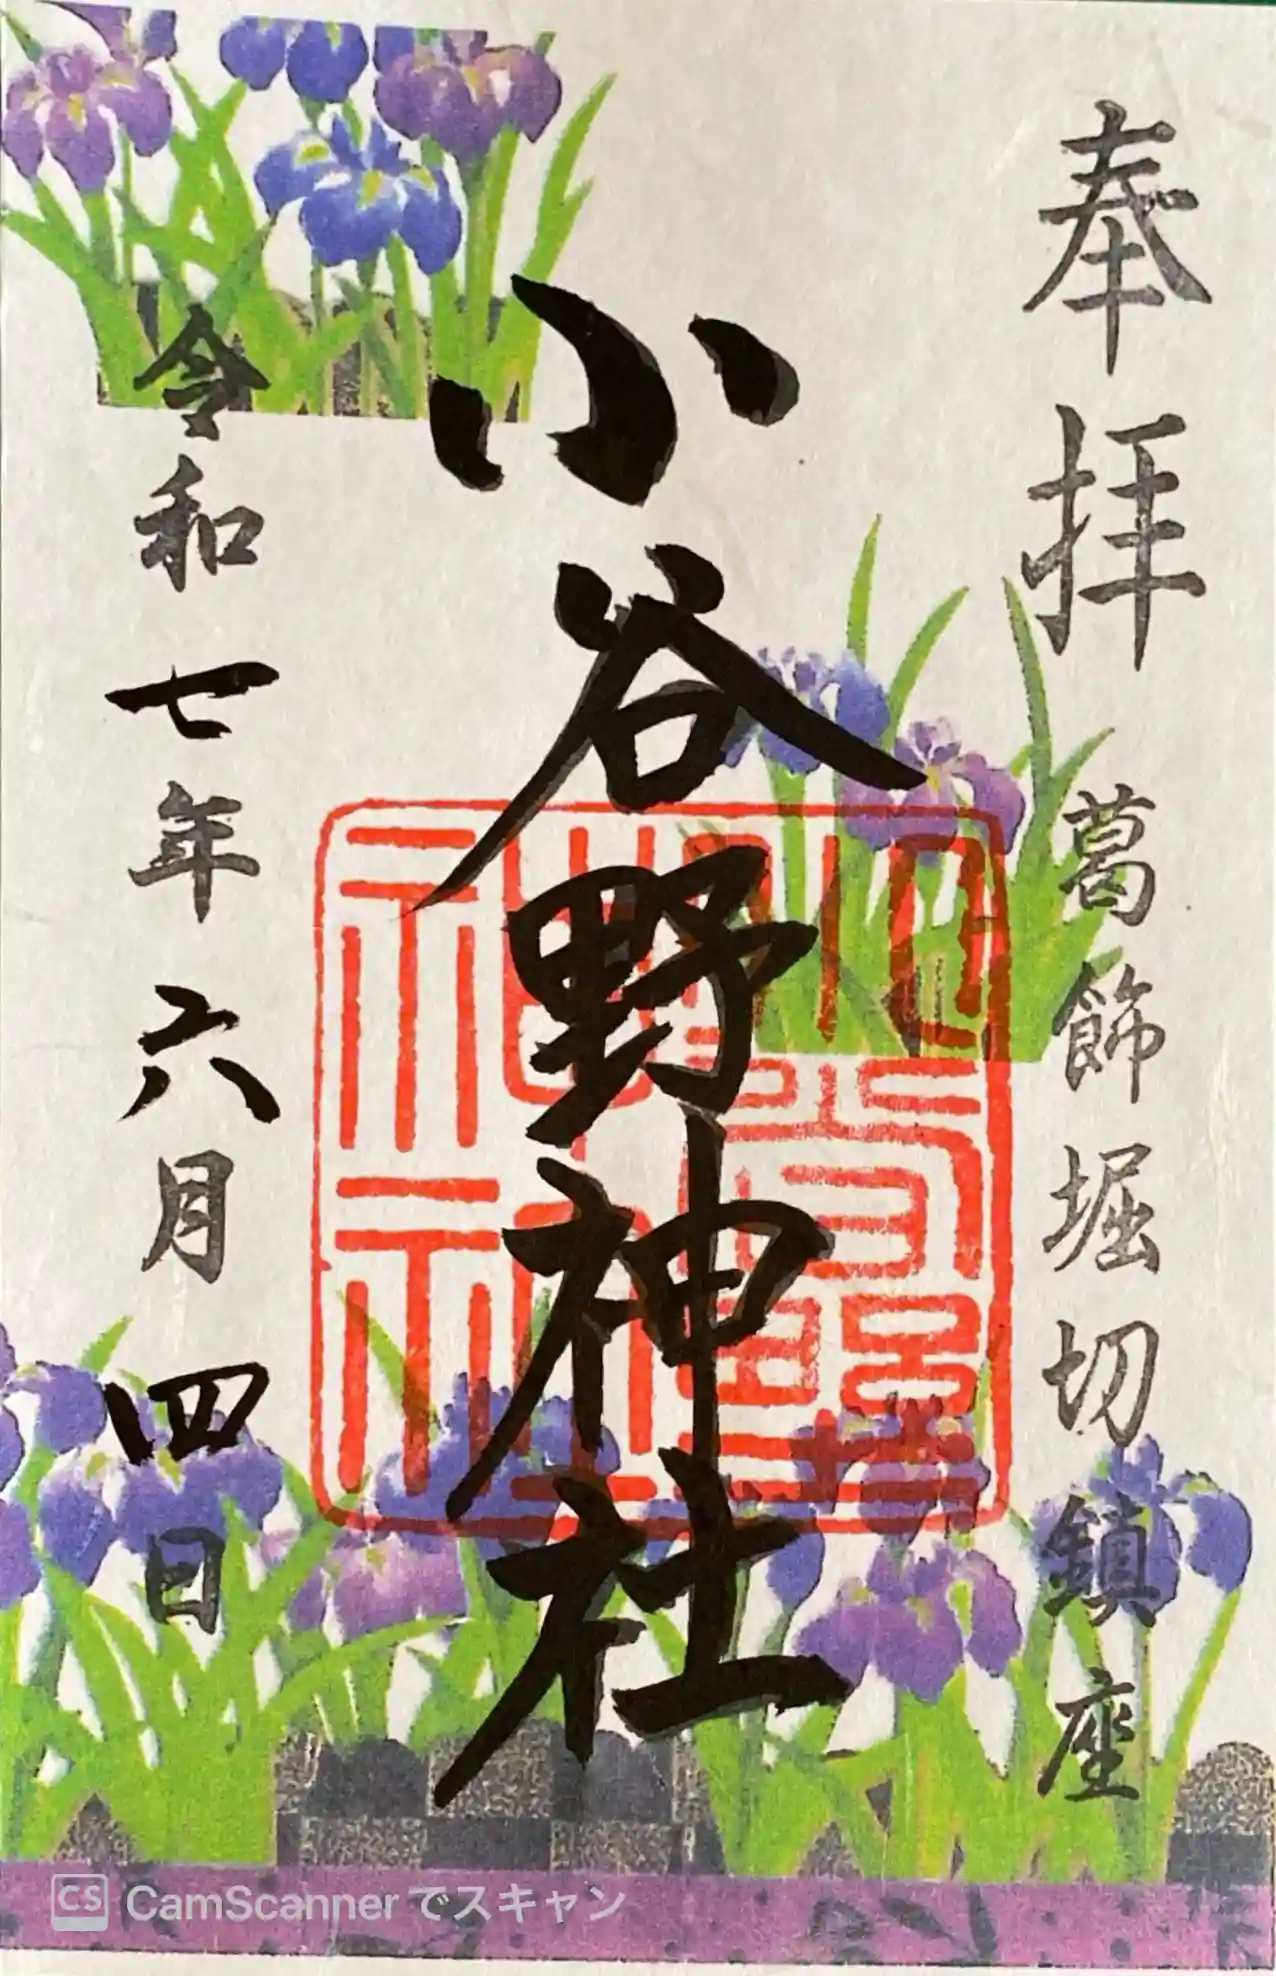 奉拝
葛飾堀切鎮座
小谷野神社
令和七年六月四日
CS CamScannerでスキャン